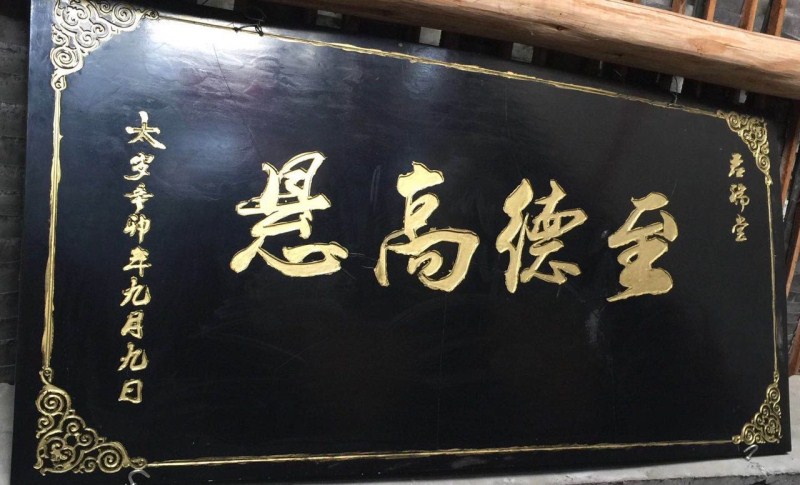 君瑞堂
至德高悬
太岁辛卯年九月九日